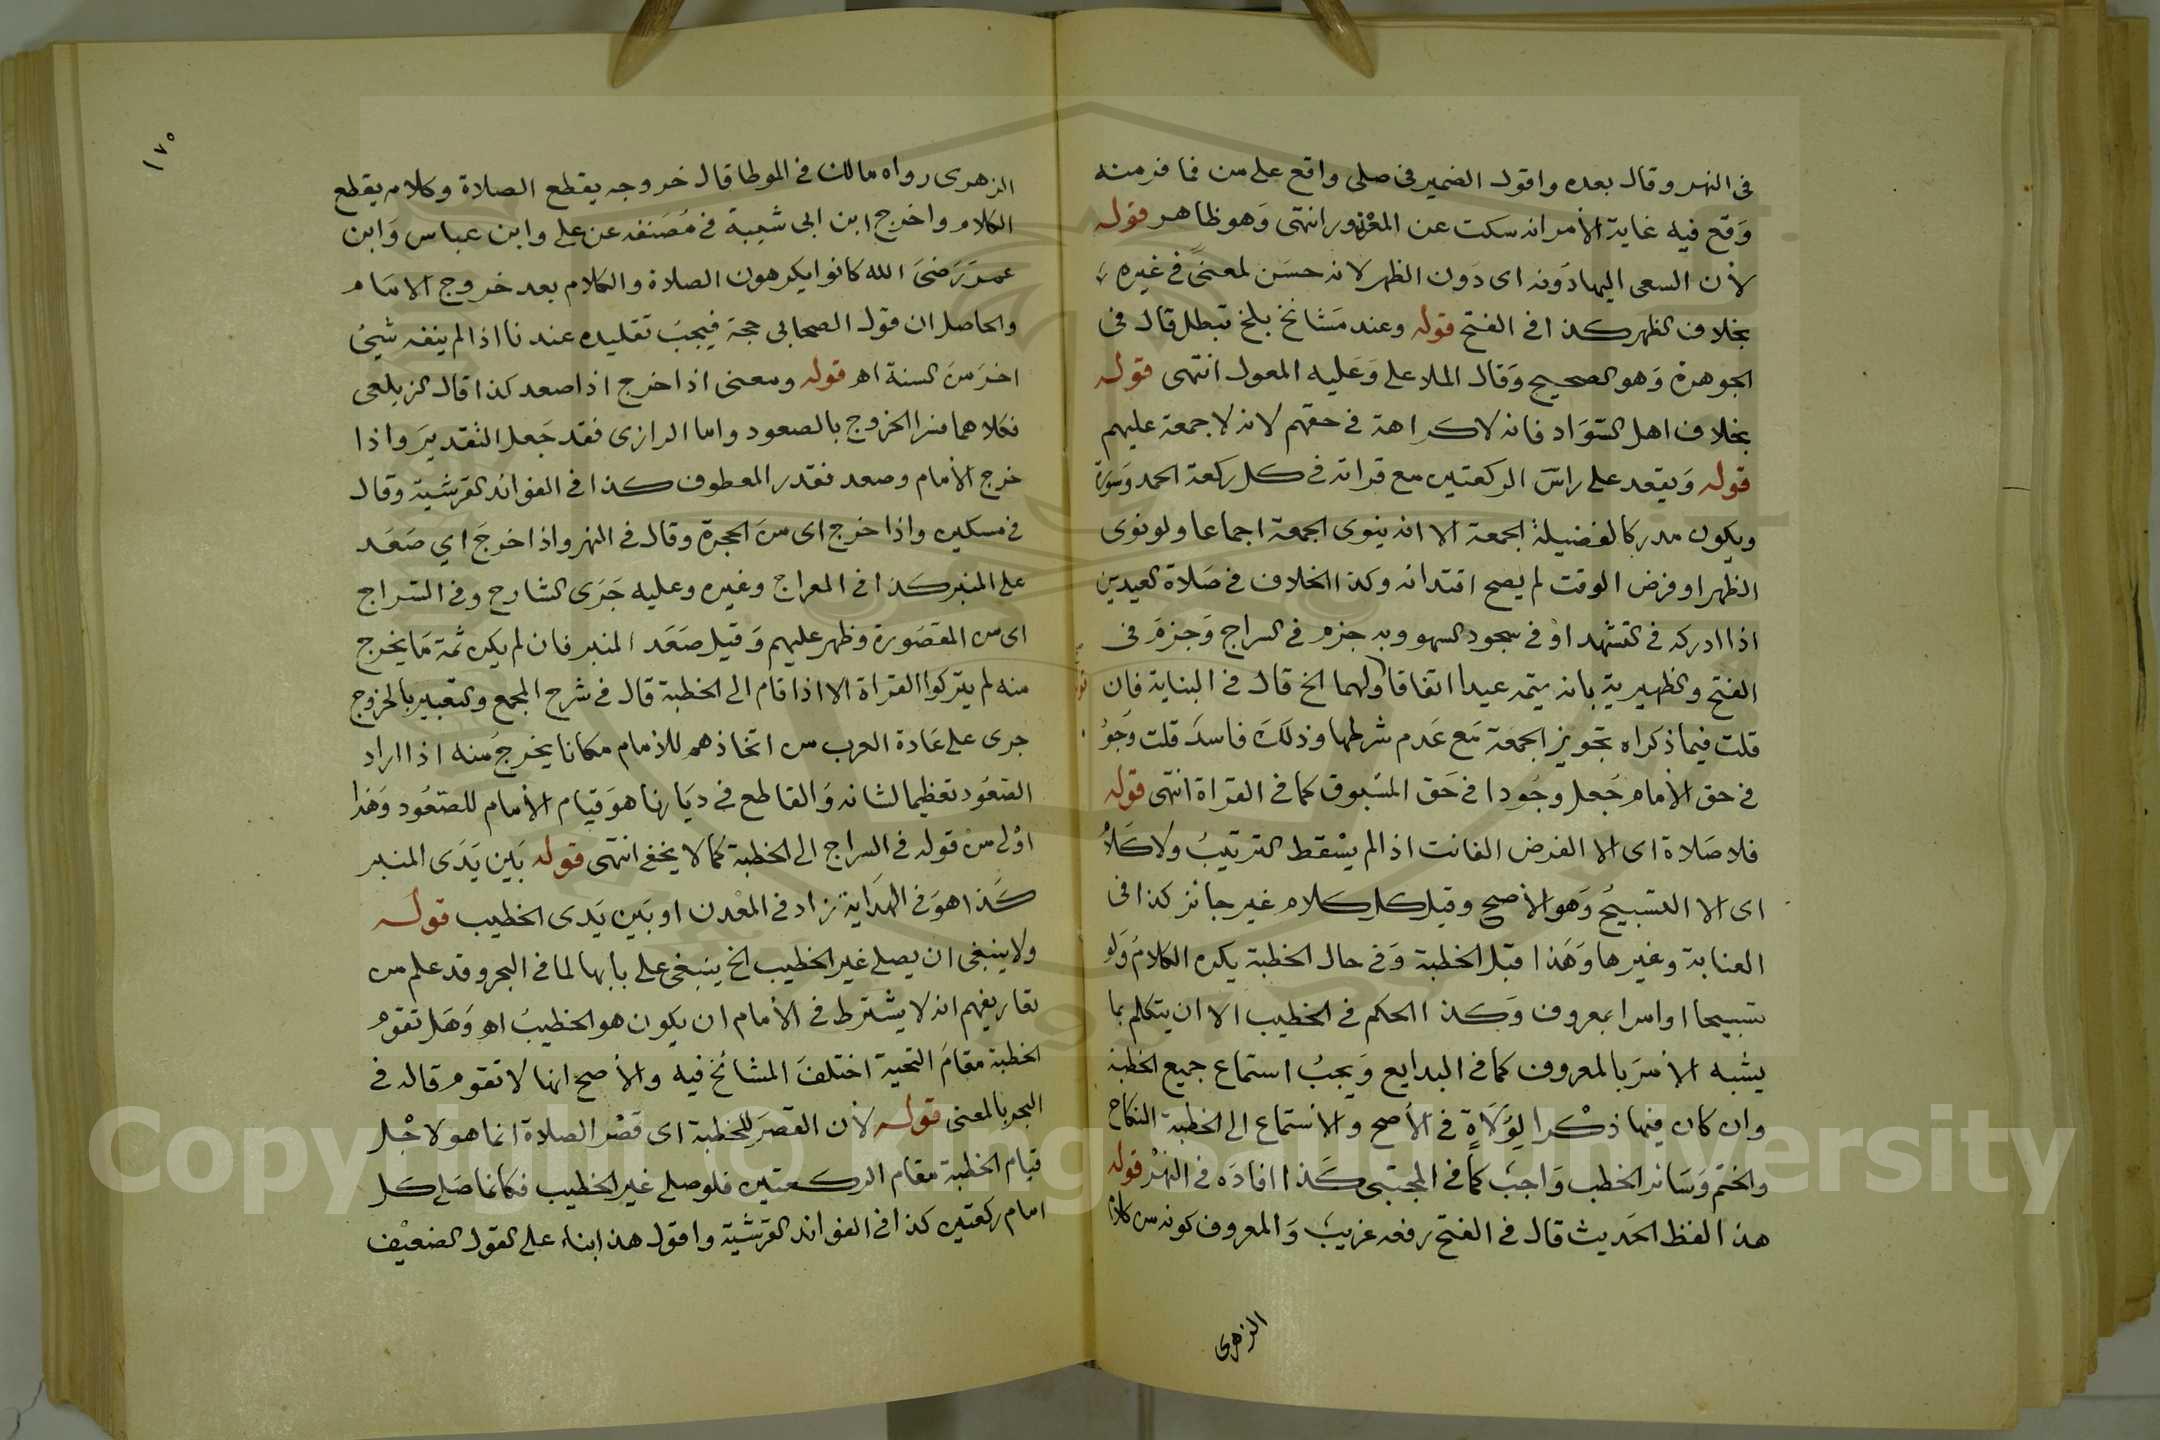 في النهر وقال بعده واقول الضمير في صلى واقع على من فما فر منه
وَقع فيه غاية الأمر انه سكت عن المعْذور انتهى وَهو ظاهر قوله
لأن السعى اليها دُونه اى دَون الظهر لانه حسَن لمعنىً في غيره
بخلاف الظهر كذا في الفتح قوله وعند مَشائخ بلخ تبطل قال في
الجوهرة وَهو الصحيح وَقال الملا على وَعَليه المعول انتهى قوله
بخلاف اهل السّوَاد فانه لا كراهة في حقهم لانه لا جمعة عليهم
قوله وَيقعد على راسَ الركعتين مع قراته في كل ركعة الحمد وَسورة
ويكون مدركا لفضيلة الجمعة الا انه ينوى الجمعة اجماعا ولو نوى
الظهر او فرض الوقت لم يصح اقتدانه وكذا الخلاف في صَلاة العيدين
اذا ادركه في التشهد اوْ في سجود السهو وبه جزم في السراج وَجزمَ في
الفتح والظهيرية بانه يتمه عيدا اتفاقا ولهما الخ قال في البناية فان
قلت فيما ذكراه تجويز الجمعة مَع عَدم شرطها وذلكَ فاسدَ قلت وَجُو
في حق الأمام جُعل وجُودا في حَق المسْبوق كما في القراة انتهى قوله
فلا صَلاة اى الا الفرض الفائت اذ الم يسْقط الترتيبُ ولا كَلاُ
اى الا التسبيحُ وَهو الأصح وقيل كل كلام غير جائز كذا في
العناية وغيرها وَهَذا قبل الخطبة وَفي حال الخطبة يكره الكلامُ وَلو
تسبيحا او امرا بمعروف وَكذا الحكم في الخطيب الا ان يتكلم بما
يشبه الامرَ بالمعروف كما في البدايع وَيجبُ استماع جميع الخطبة
وان كان فيها ذكْر الوُلَاةِ في الأصح والأستماع الى الخطبة النكاح
والختم وَسَائر الخطب وَاجبَ كما في المجتبى كَذا افادَه في النهْر قوله
هذا لفظ الحَديث قال في الفتح رفعه غريبَ وَالمعروف كونه من كلام
الزهرى
١٧٥
الزهرى رواه مالك في الموطا قال خروجه يقطع الصلاة وكلامه يقطع
الكلام واخرج ابن ابى شيبة في مُصَنفه عن على وابن عباس وَابن
عمرَ رَضىَ الله كانوا يكرهون الصلاة والكلام بعد خروج الامَام
والحاصل ان قول الصحابى حجة فيجبَ تقليده عندنا اذا لم ينفه شيئ
اخرَ مَن السنة اه قوله ومعنى اذا خرج اذا صعد كذا قال الزيلعى
فكلاهما فسرا الخروج بالصعود واما الرازى فقد جَعل التقديرَ واذا
خرج الأمام وصعد فقدر المعطوف كذا في الفوائد القرشية وقال
في مسكين واذا خرج اى منَ الحجرة وقال في النهر واذا خرجَ اي صَعَد
على المنبر كذا في المعراج وغيره وعليه جَرَى الشارح وفي السّراج
اى من المقصَورة وظهر عليهم وَقيل صَعَد المنبر فان لم يكن ثمة مَا يخرج
منه لم يتركوا القراة الا اذا قام الى الخطبة قال في شرح المجمع والتعبير بالخروج
جرى على عَادة العرب من اتخاذهم للأمام مكانا يخرجُ منه اذا اراد
الصّعُود تعظيما لشانه وَالقاطع في ديَارنا هوَ قيام الأمام للصّعُود وَهذا
اوْلى منْ قوله في السراج الى الخطبة كما لا يخفى انتهى قوله بَين يَدَى المنبر
كَذا هوَ في الهَداية زاد في المعْدن او بَين يَدى الخطيب قوله
ولا ينبغى ان يصلى غير الخطيب الخ ينبغى على بابها لما في البحر وقد علم من
تفاريغهم انه لا يشترط في الأمام ان يكون هو الخطيبُ اه وَهَل تقوم
الخطبة مقامَ التحية اختلفَ المشائخ فيه والأصح انها لا تقوم قاله في
البحر بالمعنى قوله لأن القصرَ للخطبة اى قصْر الصلاة انما هو لاجْل
قيام الخطبة مقام الركعتين فلو صلى غير الخطيب فكانما صَلى كل
امام ركعتين كذا في الفوائد القرَشيّة واقول هذا بناء على القول الضعيْف
Copyright © King Saud University